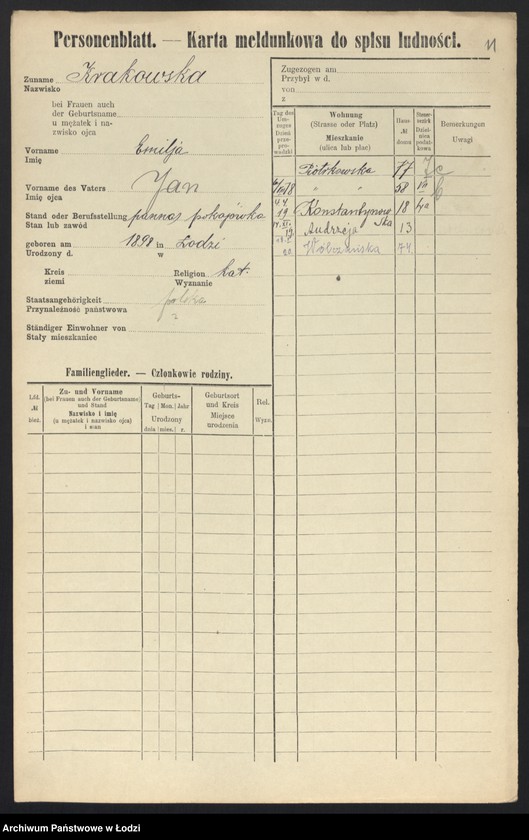 Personenblatt. — Karta meldunkowa do spisu ludności.
11
Zuname Krakowska
Nazwisko
bei Frauen auch
der Geburtsname
u mężatek i na-
zwisko ojca
Vorname Emilja
Imię
Vorname des Vaters Jan
Imię ojca
Stand oder Berufsstellung panna, pokojówka
Stan lub zawód
geboren am 1898 in Łodzi
Urodzony d. w
Kreis Religion kat.
ziemi Wyznanie
Staatsangehörigkeit polska
Przynależność państwowa
Ständiger Einwohner von
Stały mieszkaniec
Familienglieder. — Członkowie rodziny.
Lfd. № bież.
Zu- und Vorname
(bei Frauen auch der Geburtsname)
und Stand
Nazwisko i imię
(u mężatek i nazwisko ojca)
i stan
Geburts-
Tag Mon. Jahr
Urodzony
dnia mies. r.
Geburtsort
und Kreis
Miejsce
urodzenia
Rel.
Wyzn.
Zugezogen am
Przybył w d.
von
z
Tag des
Um-
zuges
Dzień
prze-
prowadzki
Wohnung
(Strasse oder Platz)
Mieszkanie
(ulica lub plac)
Haus
№
domu
Steuer-
bezirk
Dziel-
nica
podat-
kowa
Bemerkungen
Uwagi
Piotrkowska 77
" " 58
Konstantynowska 18
Andrzeja 13
Wólczańska 74
Archiwum Państwowe w Łodzi